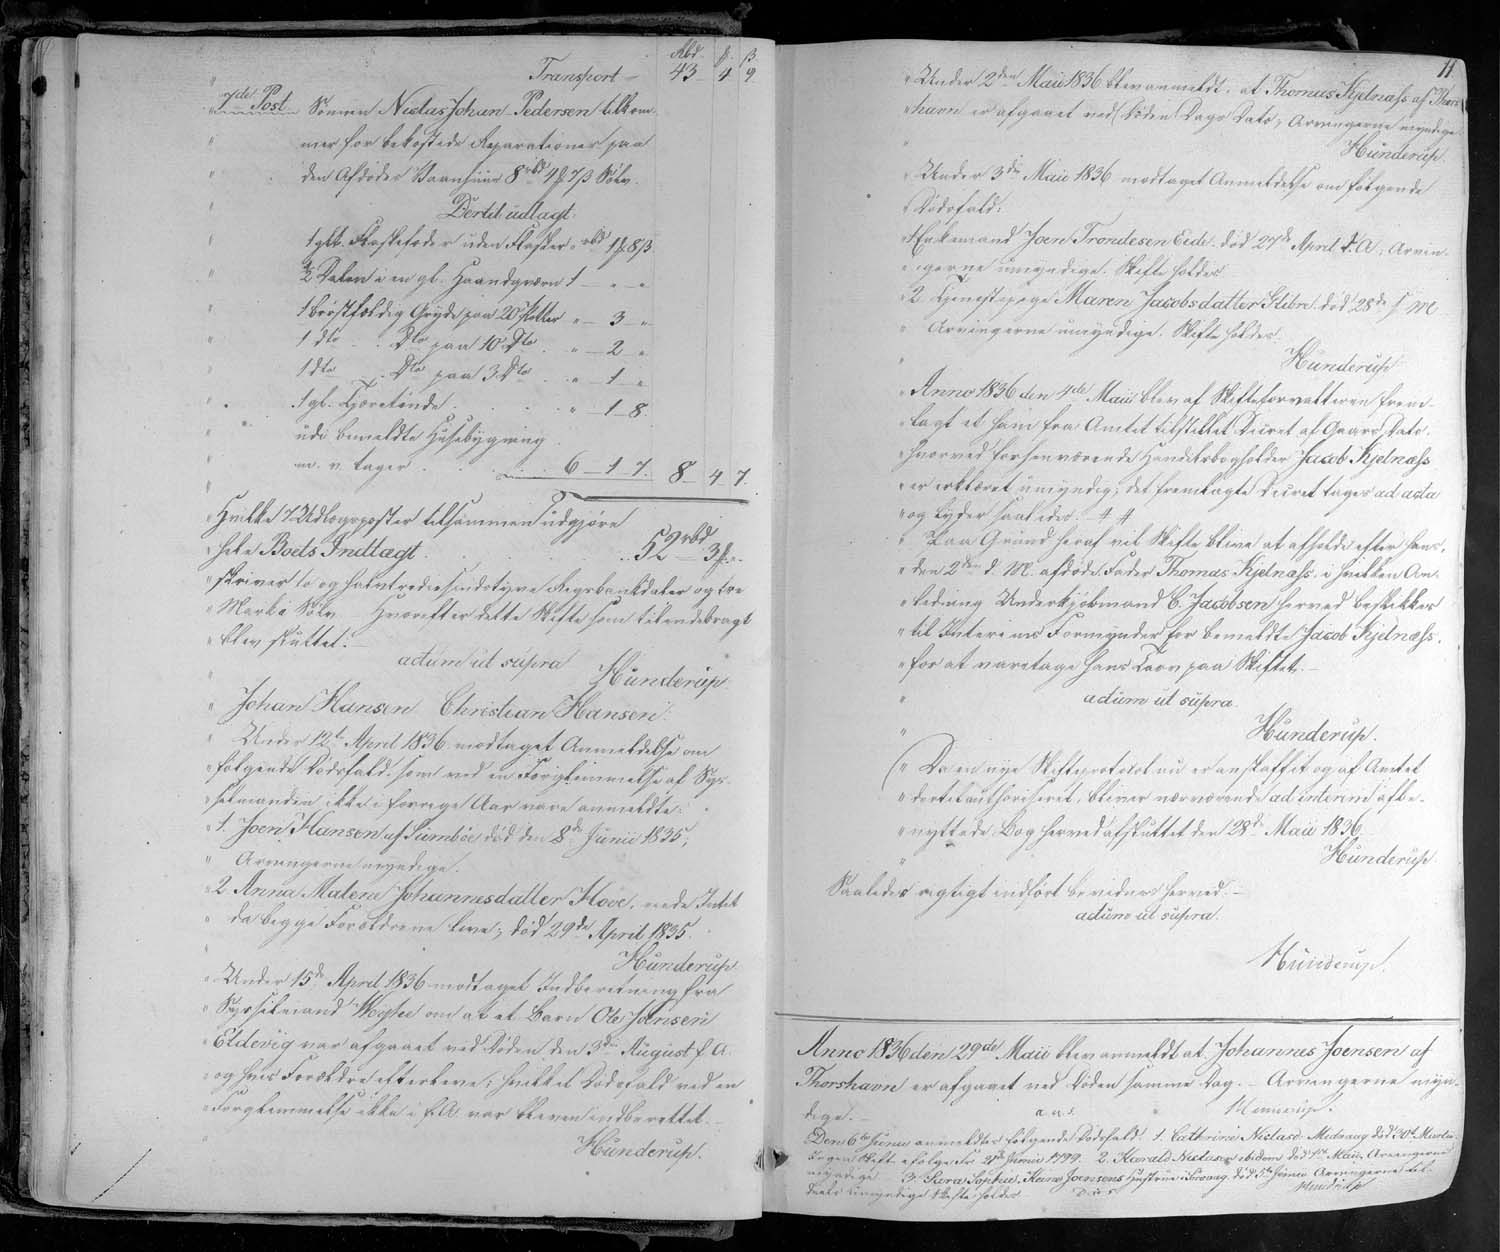 Rbd. ₰. ß
Transport – 43 – 4 9
7de Post Sønnen Niclas Johan Pedersen tilkom-
mer for bekostede Reparationer paa
den Afdødes Vaanhuus 8 rbd 4 ₰ 7 ß Sølv.
Dertil udlagt:
1 gl. Flaskefoder uden Flasker " rbd 1 ₰ 8 ß
½ Delen i en gl. Haandqværn 1 – " – "
1 brøstfældig Gryde paa 20 Potter " – 3 – "
1 dto . . Dto paa 10 Dto . " – 2 – "
1 dto . . Dto paa 3 Dto . . " – 1 – "
1 gl. Tjæretønde . . . . . " – 1 8.
udi bemeldte Huusebygning
m. v. tages . . . . 6 – 1 7. 8 – 4 7.
Hvilke 7 Udlægsposter tilsammen udgjøre
hele Boets Indtægt . . . . . . 52 rbd 3 ₰ "
skriver to og halvtredsindstyve Rigsbankdaler og tre
Mark Sølv. Hvorefter dette Skifte som tilendebragt
blev sluttet. –
actum ut supra Hunderup.
Johan Hansen Christian Hansen.
Under 12te April 1836 modtaget Anmeldelse om
følgende Dødsfald som ved en Forglemmelse af Sys-
selmanden ikke i forrige Aar vare anmeldte:
1. Joen Hansen af Sumbøe død den 8de Junii 1835;
Arvingerne myndige.
2. Anna Malena Johannesdatter Hove, eiede Intet
da begge Forældrene leve; død 29de April 1835.
Hunderup
Under 15de April 1836 modtaget Indberetning fra
Sysselmand Weyhe om at et Barn Ole Jansen
Eldevig var afgaaet ved Døden den 3die August f. A.
og hvis Forældre efterleve; hvilket Dødsfald ved en
Forglemmelse ikke i f. A. var bleven indberettet. –
Hunderup.
11
Under 2den Maii 1836 blev anmeldt, at Thomas Kjelnæss af Thors-
havn er afgaaet ved Døden Dags Dato, Arvingerne myndige.
Hunderup.
Under 3die Maii 1836 modtaget Anmeldelse om følgende
Dødsfald:
1 Enkemand Joen Trondesen Eide. død 27de April d. A, Arvin-
gerne umyndige. Skifte holdes
2. Tjenestepige Maren Jacobsdatter Glibre. død 28de s. M
Arvingerne umyndige. Skifte holdes.
Hunderup
Anno 1836 den 4de Maii blev af Skifteforvalteren frem-
lagt et ham fra Amtet tilstillet Decret af Gaars Dato.
hvorved forhenværende Handelsbogholder Jacob Kjelnæss
er erklæret umyndig; det fremlagte Decret tages ad acta
og lyder saaledes. –
Paa Grund heraf vil Skifte blive at afholde efter hans,
den 2den d. M. afdøde Fader Thomas Kjelnæss, i hvilken An-
ledning Underkjøbmand C. Jacobsen herved beskikkes
til Interims Formynder for bemeldte Jacob Kjelnæss.
for at varetage hans Tarv paa Skiftet. –
actum ut supra.
Hunderup.
Da en nye Skifteprotocol nu er anskaffet og af Amtet
dertil authoriseret, bliver nærværende ad interim afbe-
nyttede Bog herved afsluttet den 28de Maii 1836.
Hunderup
Saaledes rigtigt indført bevidnes herved. –
actum ut supra.
Hunderup.
Anno 1836 den 29de Maii blev anmeldt at Johannes Joensen af
Thorshavn er afgaaet ved Døden samme Dag. – Arvingerne myn-
dige. – a. u. s. Hunderup.
Den 6te Junii anmeldtes følgende Dødsfald. 1. Cathrine Niclasd. Midvaag død 30te Martii
Ingen Skifte ifølge Fr. 21de Junii 1799. 2. Harald Niclasen ibidem død 1ste Maii, Arvingerne
myndige 3. Sara Sophia, Hans Joensens Hustrue i død 5te Junii Arvingerne til-
deels umyndige Skifte holdes Hunderup